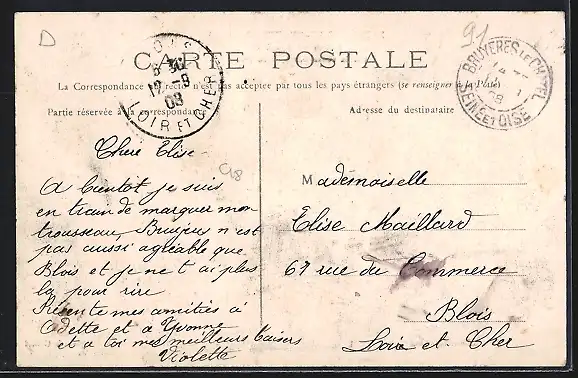 D
91
CARTE POSTALE
La Correspondance au recto n'est pas acceptée par tous les pays étrangers (se renseigner à la Poste)
Partie réservée à la correspondance
Adresse du destinataire
BLOIS
6 30
12 -9
08
LOIR ET CHER
BRUYERES LE CHATEL
14
08
SEINE ET OISE
Chere Elise
C98
A bientot je suis
en train de marquer mon
trousseau, Bruyeres n'est
pas aussi agréable que
Blois et je ne t'ai plus
la pour rire
Presente mes amitiés à
Odette et a Yvonne
et a toi mes meilleurs baisers
Violette
Mademoiselle
Elise Maillard
67 rue du Commerce
Blois
Loir et Cher